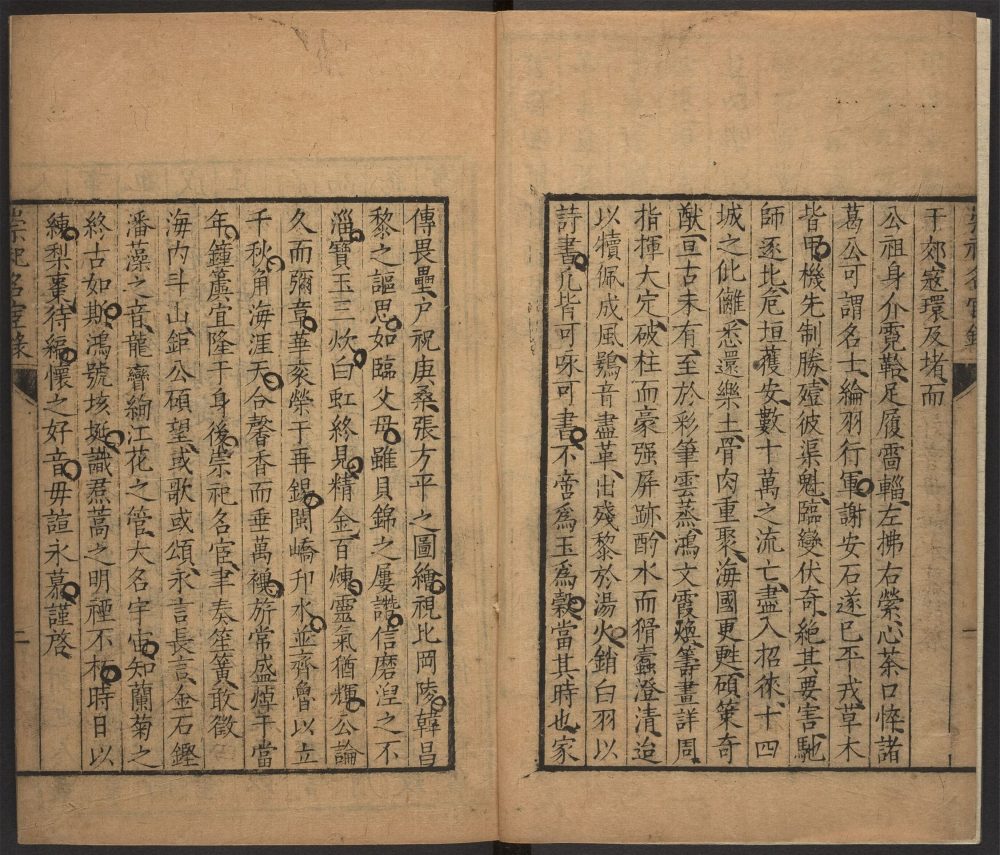 崇祀名宦錄
于郊寇環反堵而
公祖身介霓鞈足履霤輜左拂右縈心茶口悴諸
葛公可謂名士綸羽行軍謝安石遂已平戎草木
皆甲機先制勝殪彼渠魁臨變伏奇絶其要害馳
師逐北危垣獲安數十萬之流亡盡入招徠十四
城之仳離悉還樂土骨肉重聚海國更甦碩策奇
猷亘古未有至於彩筆雲蒸鴻文霞煥籌畫詳周
指揮大定破柱而豪强屏跡酌水而猾蠹澄清迨
以犢佩成風鴞音盡革出殘黎於湯火銷白羽以
詩書凡皆可咏可書不啻爲玉爲穀當其時也家
一
傳畏壘户祝庚桑張方平之圖繪視比岡陵韓昌
黎之謳思如臨父母雖貝錦之屢讒信磨湼之不
淄寶玉三炊白虹終見精金百煉靈氣猶輝公論
久而彌章華衮榮于再錫閩嶠卭水並齊魯以立
千秋角海涯天合馨香而垂萬禩旂常盛烨千當
年鐘虡宜隆于身後崇祀名宦聿奏笙簧敢徵
海内斗山鉅公碩望或歌或頌永言長言金石鏗
潘藻之音龍鸞絢江花之管大名宇宙知蘭菊之
終古如斯鴻號垓埏識焄蒿之明禋不朽時日以
練梨棗待編懷之好音毋諠永慕謹啓
崇祀名宦錄
二